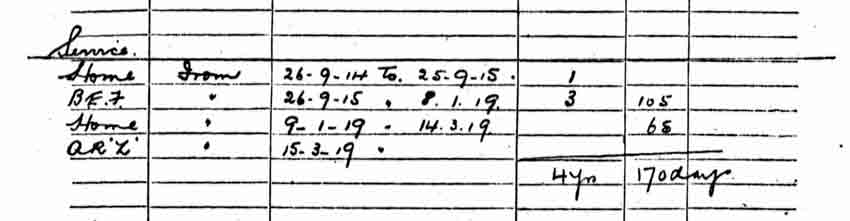 Service.
Home From 26-9-14 To. 25-9-15. 1
B.E.F. " 26-9-15 " 8.1.19 3 105
Home " 9-1-19 - 14.3.19 65
AR'Z' " 15-3-19 "
4 yrs 170 days